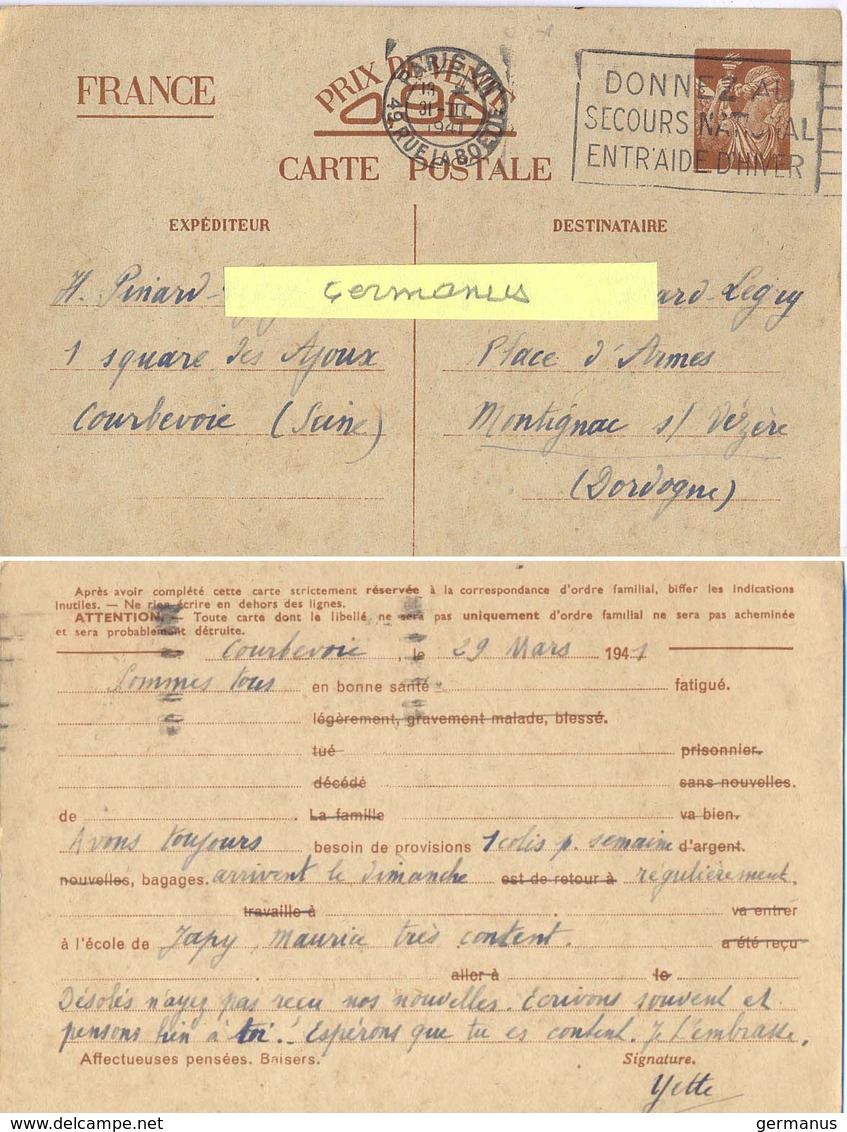 FRANCE
PRIX DE VENTE
0,80
PARIS VIII
19
31-III
1941
49, RUE LA BOETIE
DONNEZ AU
SECOURS NATIONAL
ENTR'AIDE D'HIVER
CARTE POSTALE
EXPÉDITEUR
DESTINATAIRE
germanus
H. Pinard-
ard-Leguy
1 square des Ajoux
Place d'Armes
Courbevoie (Seine)
Montignac s/ Vézère
(Dordogne)
Après avoir complété cette carte strictement réservée à la correspondance d'ordre familial, biffer les indications
inutiles. — Ne rien écrire en dehors des lignes.
ATTENTION. — Toute carte dont le libellé ne sera pas uniquement d'ordre familial ne sera pas acheminée
et sera probablement détruite.
Courbevoie, le 29 Mars 1941
Sommes tous en bonne santé fatigué.
légèrement, gravement malade, blessé.
tué prisonnier.
décédé sans nouvelles.
de La famille va bien.
Avons toujours besoin de provisions 1 colis p. semaine d'argent.
nouvelles, bagages. arrivent le dimanche est de retour à régulièrement.
travaille à va entrer
à l'école de Japy, Maurice très content. a été reçu
aller à le
Désolés n'ayez pas reçu nos nouvelles. Ecrivons souvent et
pensons bien à toi! Espérons que tu es content. Je t'embrasse.
Affectueuses pensées. Baisers.
Signature.
Yette
germanus